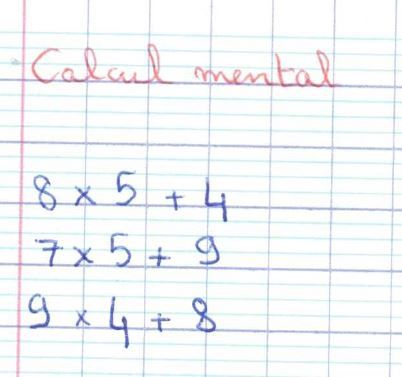 Calcul mental
8 x 5 + 4
7 x 5 + 9
9 x 4 + 8